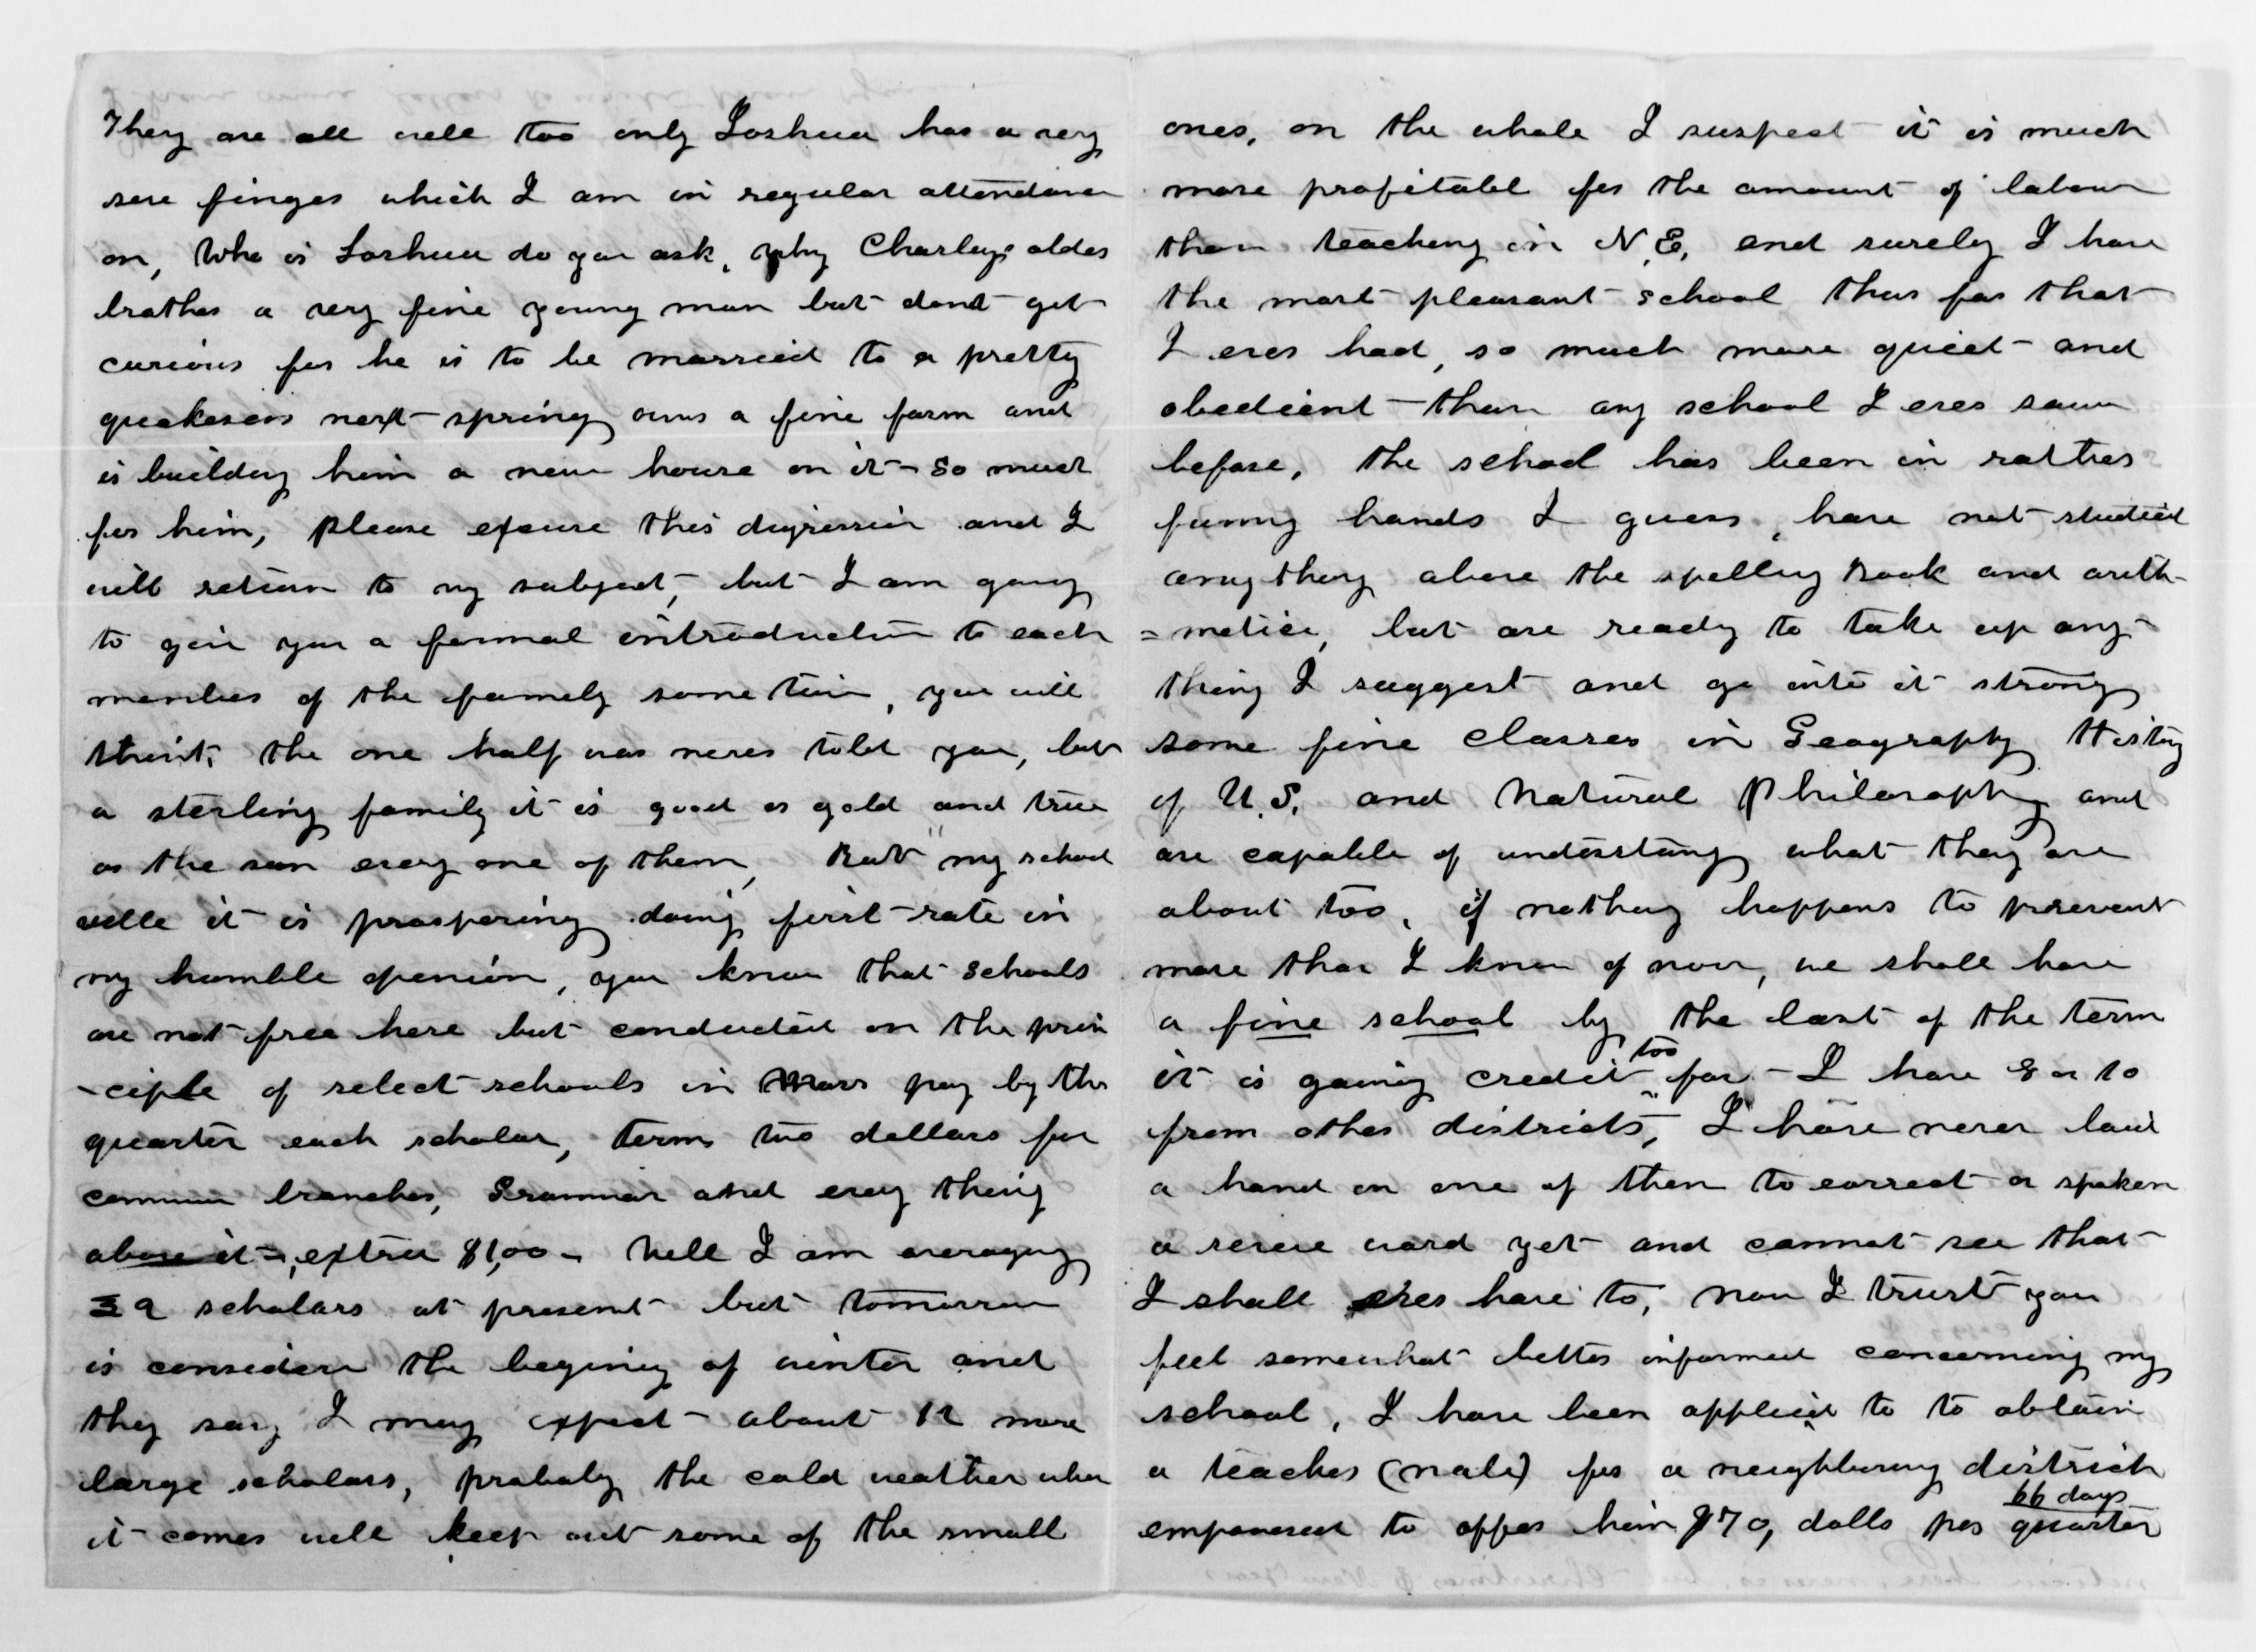 They are all well too only Joshua has a very
sore finger which I am in regular attendance
on, Who is Joshua do you ask, why Charleys older
brother a very fine young man but dont get
curious for he is to be married to a pretty
quakeress next spring owns a fine farm and
is building him a new house on it - so much
for him, please excuse this digression and I
will return to my subject, but I am going
to give you a formal introduction to each
member of the family some time, you will
think the one half was never told you, but
a sterling family it is good as gold and true
as the sun every one of them, But "my school
well it is prospering doing first rate in
my humble openion, you know that schools
are not free here but conducted on the prin
-ciple of select schools in Mass pay by the
quarter each scholar, terms two dollars for
common branches, Grammar and every thing
above it -, extra $1,00 - Well I am averaging
39 scholars at present but tomorrow
is considere the begining of winter and
they say I may expect about 12 more
large scholars, probaly the cold weather when
it comes will keep out some of the small
ones, on the whole I suspect it is much
more profitabl for the amount of labour
than teaching in N.E. and surely I have
the most pleasant school thus far that
I ever had, so much more quiet and
obedient than any school I ever saw
before, the school has been in rather
funny hands I guess, have not studied
any thing above the spelling Book and arith-
=metice, but are ready to take up any-
thing I suggest and go into it strong
some fine classes in Geography History
of U.S. and Natural Philosophy and
are capable of understang what they are
about too, if nothing happens to prevent
more than I know of now, we shall have
a fine school by the last of the term
it is gaining credit too far - I have 8 or 10
from other districts, I have never laid
a hand on one of them to correct or spoken
a severe word yet and cannot see that
I shall ever have to, now I trust you
feel somewhat better informed concerning my
school, I have been applied to to obtain
a teacher (male) for a neighboring district
empowered to offer him $70, dolls per quarter
66 days